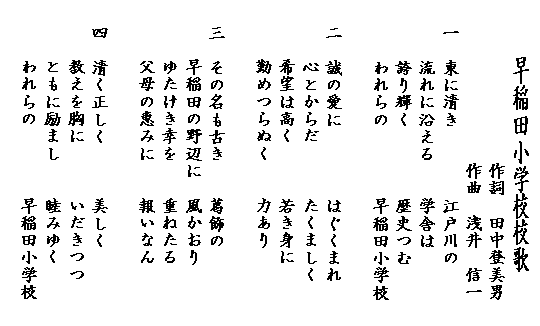 早稲田小学校校歌
作詞 田中登美男
作曲 浅井 信一
一
東に清き 江戸川の
流れに沿える 学舎は
誇り輝く 歴史つむ
われらの 早稲田小学校
二
誠の愛に はぐくまれ
心とからだ たくましく
希望は高く 若き身に
勤めつらぬく 力あり
三
その名も古き 葛飾の
早稲田の野辺に 風かおり
ゆたけき幸を 重ねたる
父母の恵みに 報いなん
四
清く正しく 美しく
教えを胸に いだきつつ
ともに励まし 睦みゆく
われらの 早稲田小学校